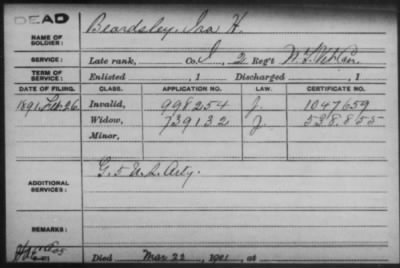 DEAD
NAME OF SOLDIER: Beardsley, Ira H.
SERVICE: Late rank, Co. I, 2 Reg't N.Y. Vet. Cav.
TERM OF SERVICE: Enlisted , 1 Discharged , 1
DATE OF FILING. CLASS. APPLICATION NO. LAW. CERTIFICATE NO.
1891, 26 Invalid, 998254 J. 1047659
Widow, 739132 J. 538.855
Minor,
ADDITIONAL SERVICES: G. 5 U.S. Arty.
REMARKS:
Died Mar 22, 1901, at